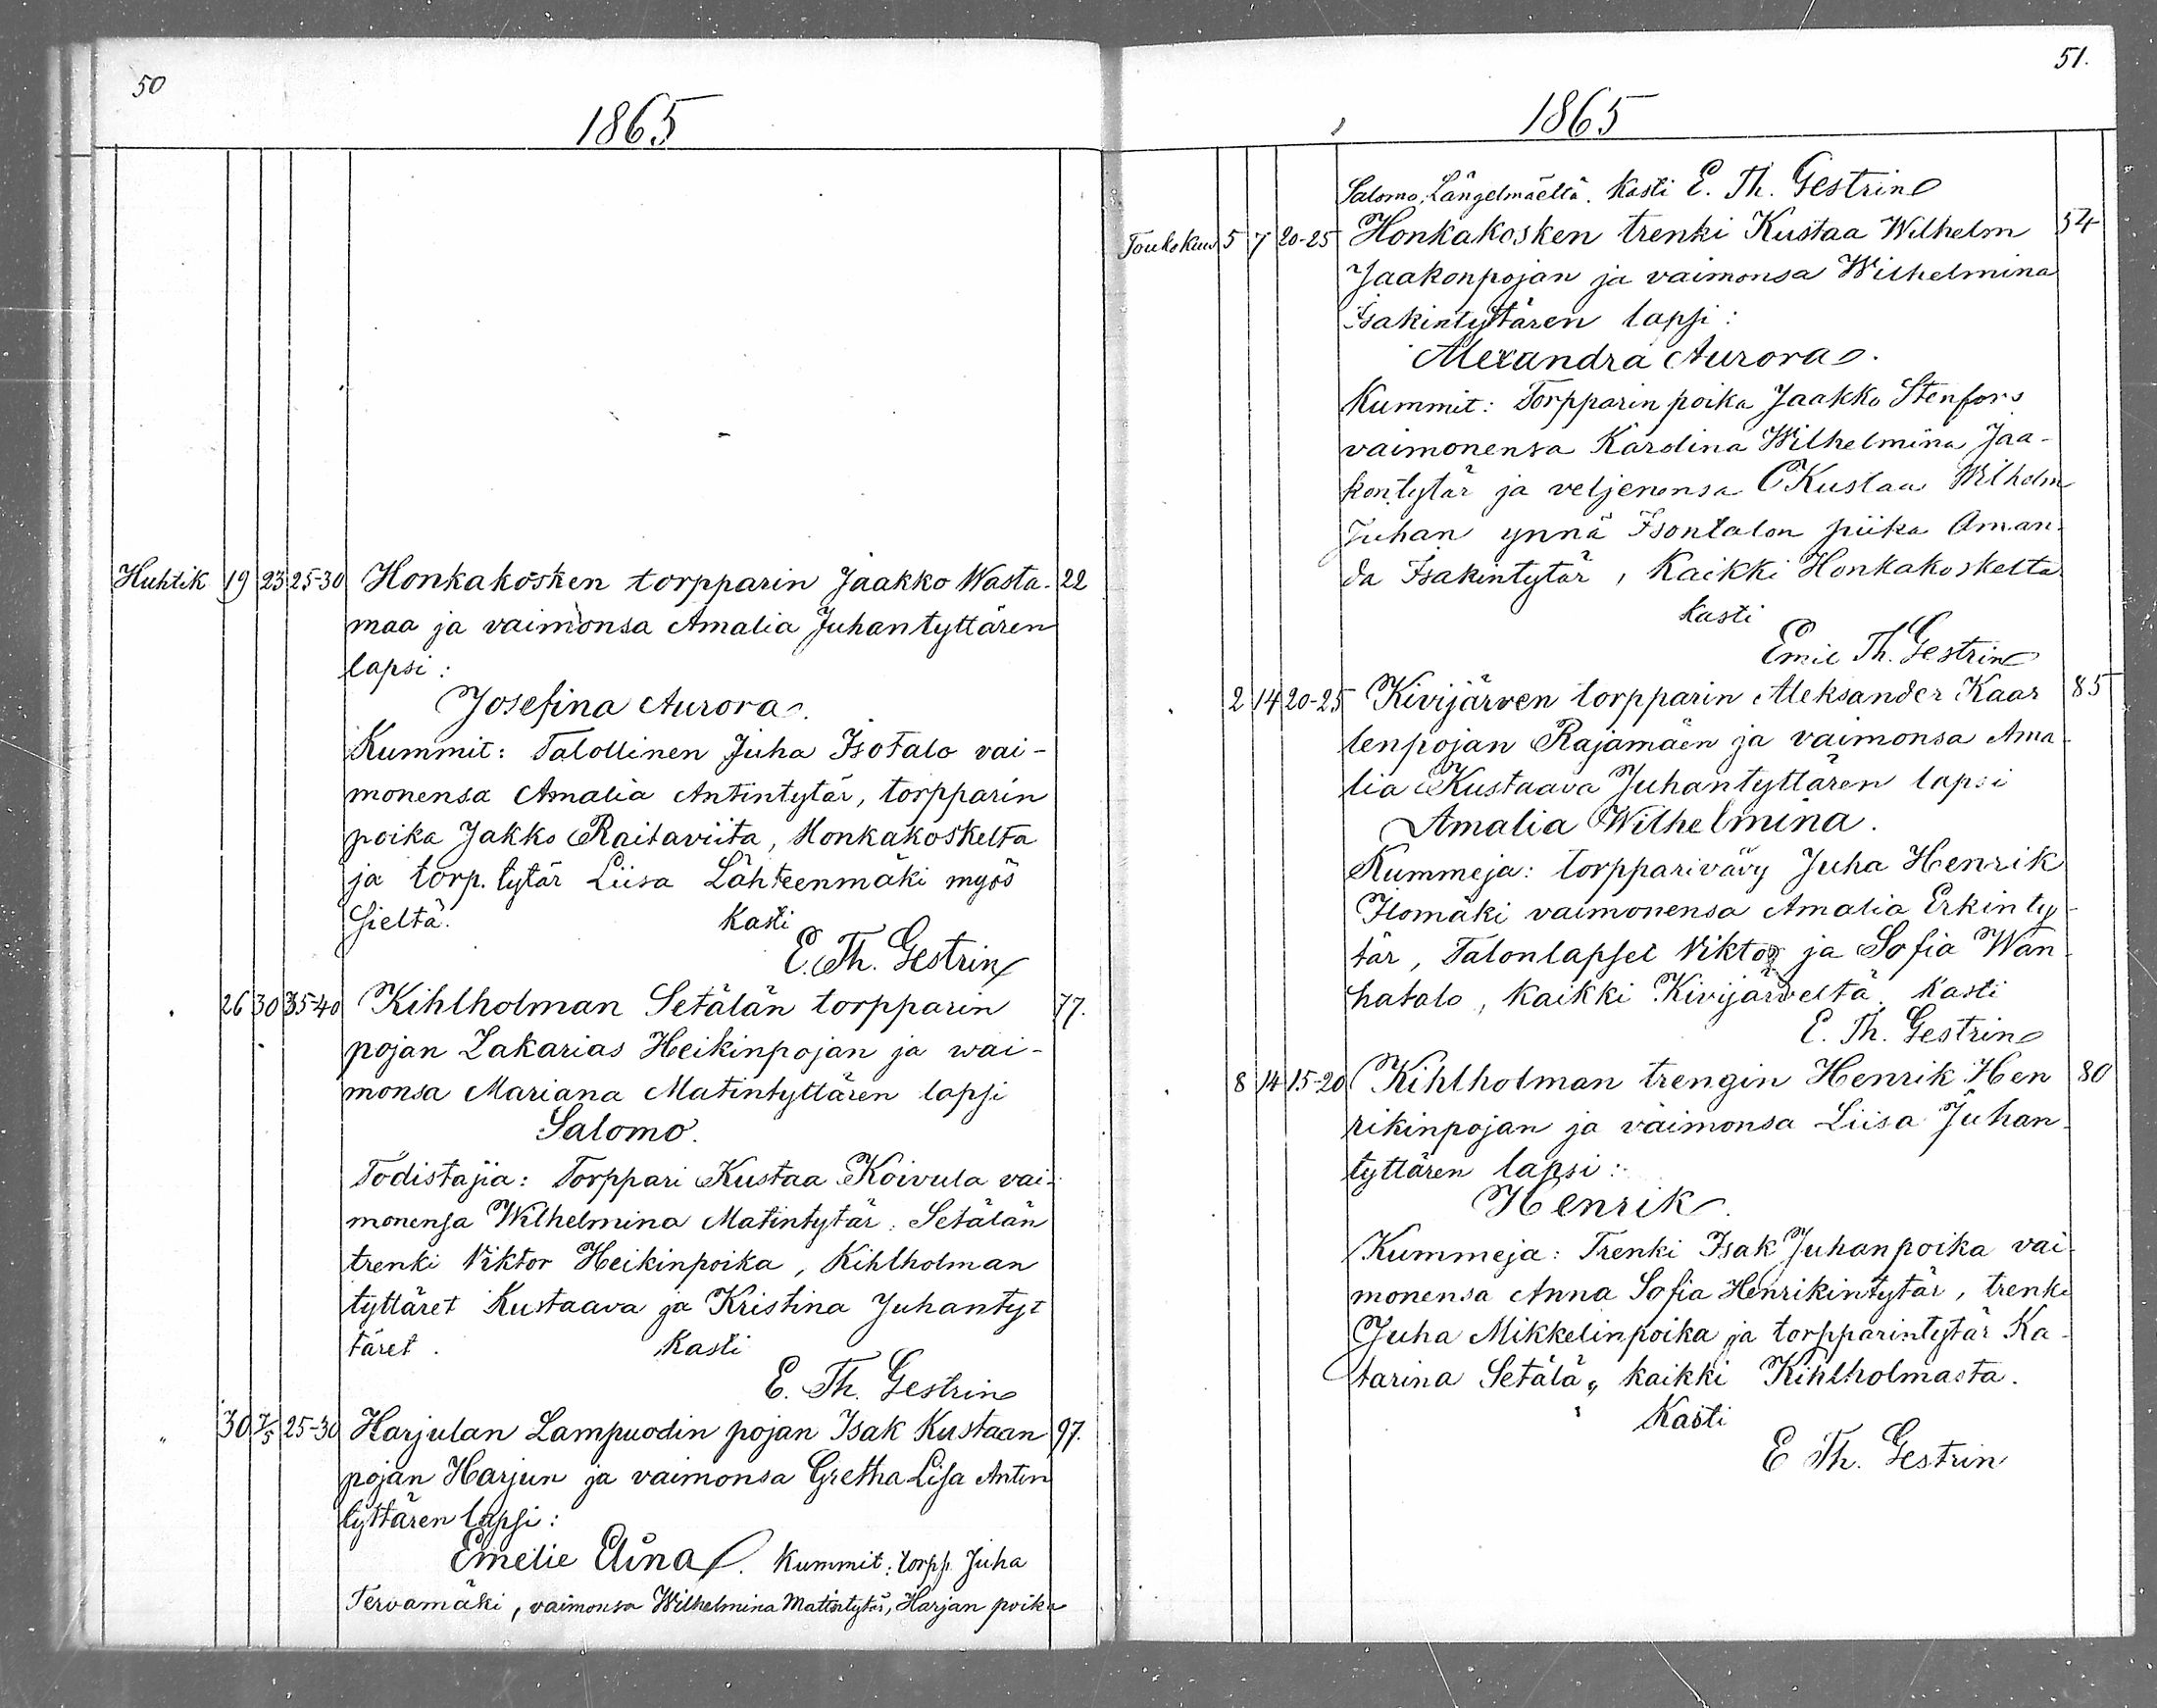 50
1865
Huhtik 19 23 25-30 Honkakosken torpparin Jaakko Wasta- 22
maa ja vaimonsa Amalia Juhantyttären
lapsi:
Josefina Aurora.
Kummit: Talollinen Juha Isotalo vai-
monensa Amalia Antintytär, torpparin
poika Jakko Raitaviita, Honkakoskelta
ja torp. tytär Liisa Lähteenmäki myös
sieltä. Kasti
E. Th. Gestrin
26 30 35-40 Kihlholman Setälän torpparin 77.
pojan Zakarias Heikinpojan ja wai-
monsa Mariana Matintyttären lapsi
Salomo.
Todistajia: Torppari Kustaa Koivula vai-
monensa Wilhelmina Matintytär, Setälän
trenki Viktor Heikinpoika, Kihlholman
tyttäret Kustaava ja Kristina Juhantyt
täret. Kasti
E. Th. Gestrin
" 30 7/5 25-30 Harjulan Lampuodin pojan Isak Kustaan 97.
pojan Harjun ja vaimonsa Gretha Lisa Antin
tyttären lapsi:
Emelie Elina. Kummit: torpp. Juha
Tervamäki, vaimonsa Wilhelmina Mattintytär, Harjan poika
51.
1865
Salomo, Längelmäeltä. Kasti E. Th. Gestrin
Toukokuu 5 7 20-25 Honkakosken trenki Kustaa Wilhelm 54
Jaakonpojan ja vaimonsa Wilhelmina
Isakintyttären lapsi:
Alexandra Aurora.
Kummit: Torpparin poika Jaakko Stenfors
vaimonensa Karolina Wilhelmina Jaa-
kontytär ja veljenensa Kustaa Wilhelm
Juhan ynnä Isontalon piika Aman-
da Isakintytär, Kaikki Honkakoskelta
Kasti
Emil Th. Gestrin
2 14 20-25 Kivijärven torpparin Aleksander Kaar 85
lenpojan Rajamäen ja vaimonsa Ama-
lia Kustaava Juhantyttären lapsi
Amalia Wilhelmina.
Kummeja: torpparivävy Juha Henrik
Ilomäki vaimonensa Amalia Erkinty-
tär, Talonlapset Viktor ja Sofia Wan-
hatalo, kaikki Kivijärveltä. Kasti
E. Th. Gestrin
8 14 15-20 Kihlholman trengin Henrik Hen 80
rikinpojan ja vaimonsa Liisa Juhan-
tyttären lapsi:
Henrik.
Kummeja: Trenki Isak Juhanpoika vai-
monensa Anna Sofia Henrikintytär, trenki
Juha Mikkelinpoika ja torpparintytär Ka-
tarina Setälä, kaikki Kihlholmasta.
Kasti
E Th. Gestrin